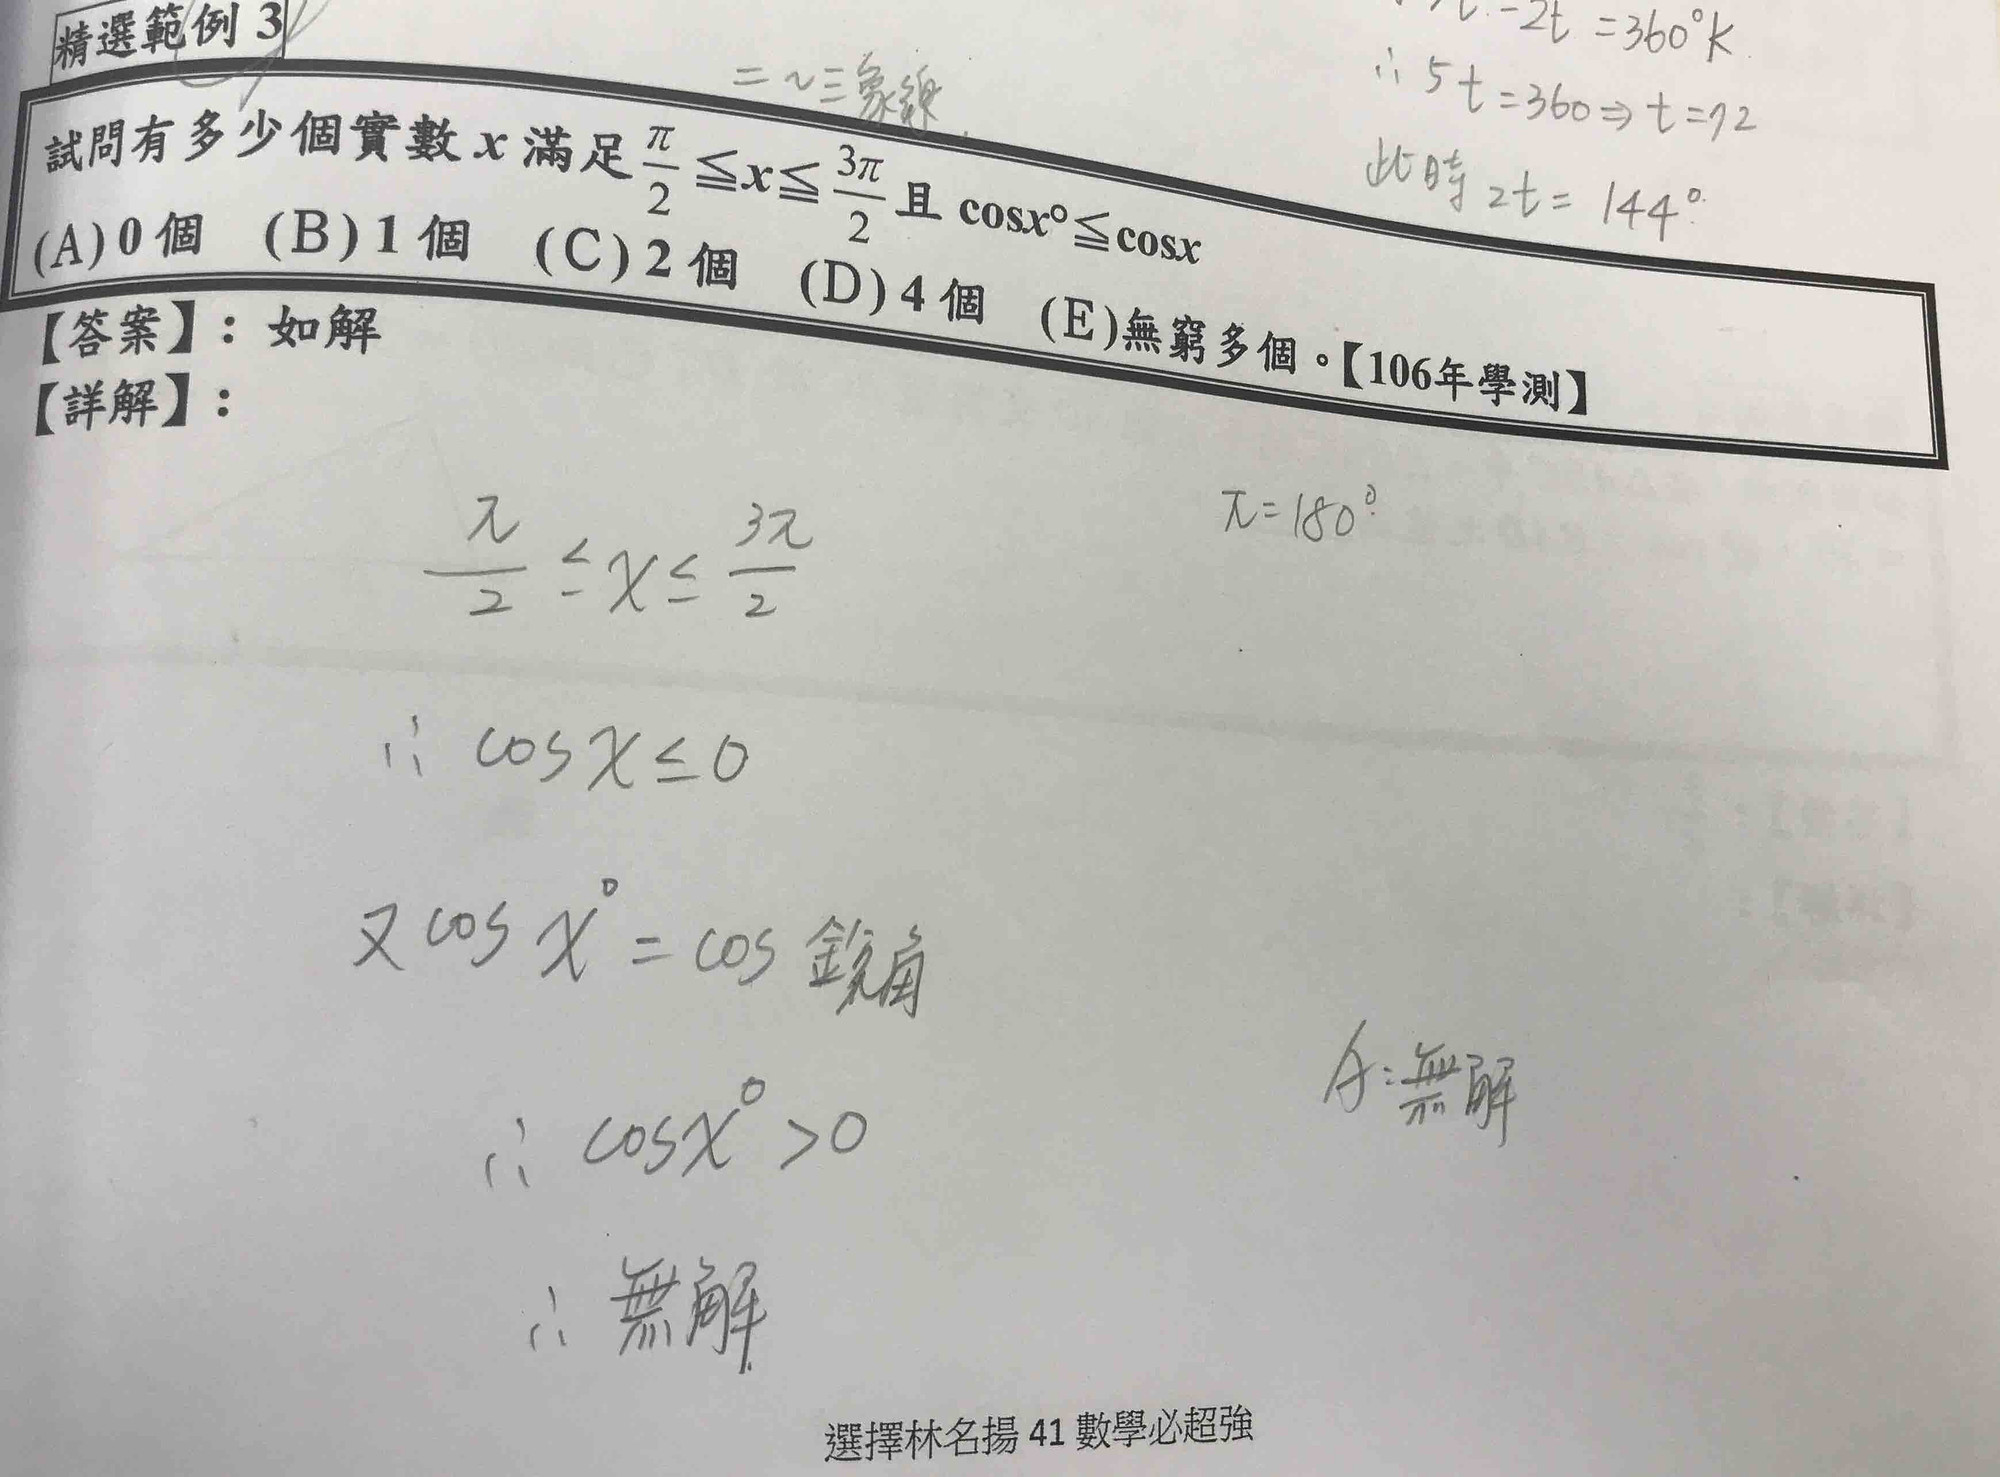 精選範例 3
二～三象線
-2t = 360°k
∴ 5t = 360 ⇒ t = 72
此時 2t = 144°
試問有多少個實數 x 滿足 π/2 ≦ x ≦ 3π/2 且 cosx° ≦ cosx
(A) 0 個 (B) 1 個 (C) 2 個 (D) 4 個 (E)無窮多個。【106年學測】
【答案】：如解
【詳解】：
π/2 ≤ x ≤ 3π/2
π = 180°
∴ cos x ≤ 0
又 cos x° = cos 銳角
∴ cosx° > 0
A：無解
∴ 無解
選擇林名揚 41 數學必超強